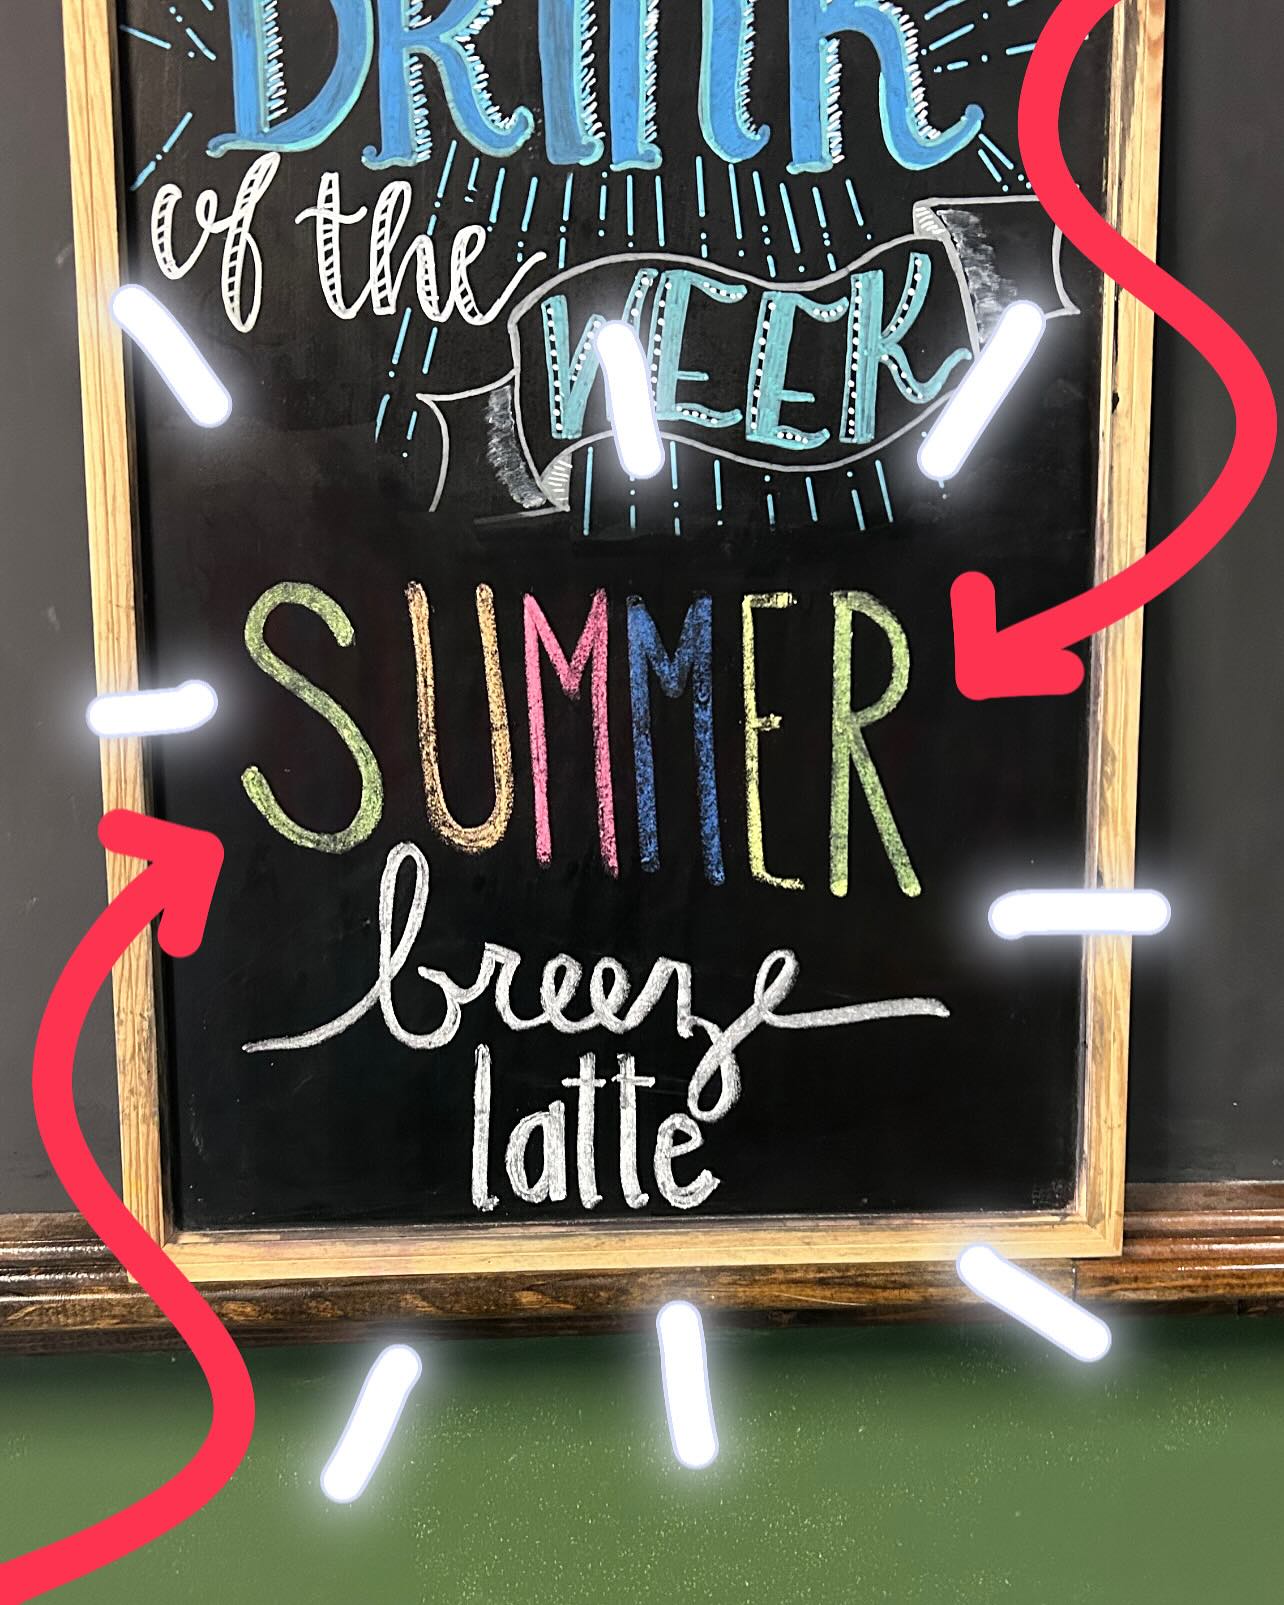 DRINK
of the
WEEK
SUMMER
breeze
latte